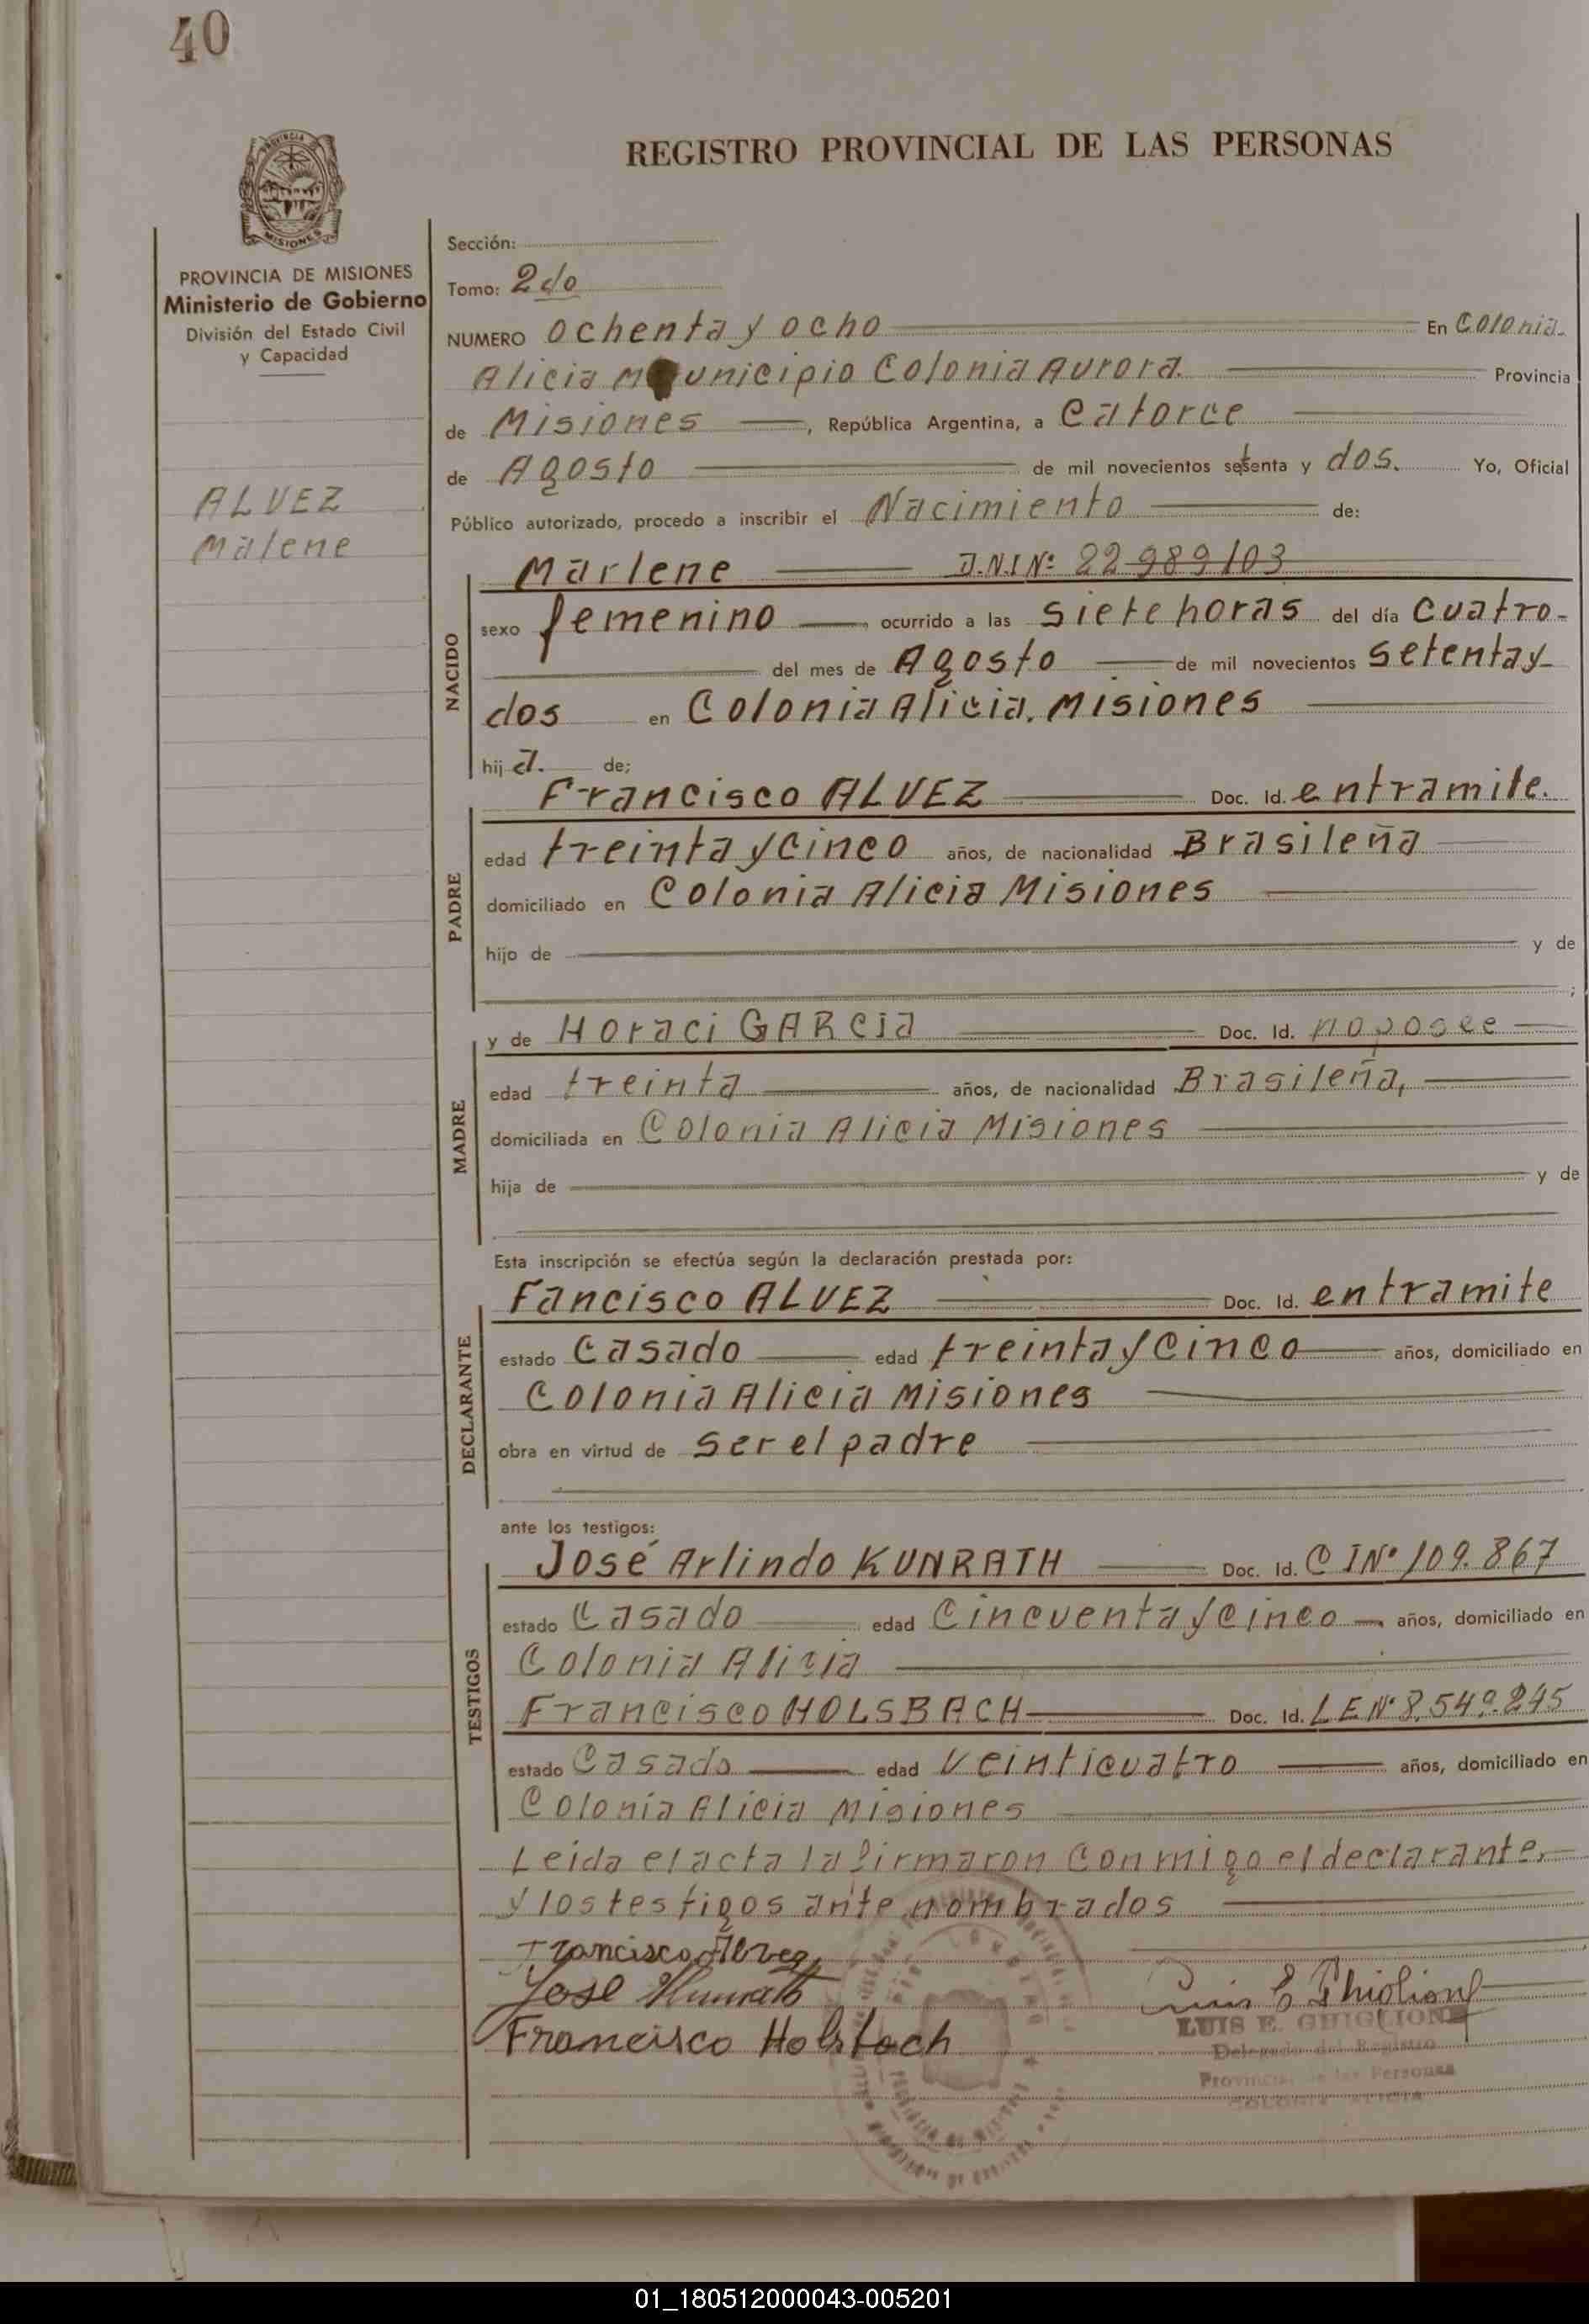 40
REGISTRO PROVINCIAL DE LAS PERSONAS
PROVINCIA
MISIONES
PROVINCIA DE MISIONES
Ministerio de Gobierno
División del Estado Civil
y Capacidad
ALVEZ
Malene
Sección:
Tomo: 2do
NUMERO ochenta y ocho En Colonia.
Alicia Municipio Colonia Aurora. Provincia
de Misiones, República Argentina, a Catorce
de Agosto de mil novecientos setenta y dos. Yo, Oficial
Público autorizado, procedo a inscribir el Nacimiento de:
Marlene D.N.I Nº: 22989103
NACIDO
sexo femenino ocurrido a las siete horas del día cuatro-
del mes de Agosto de mil novecientos setenta y
dos en Colonia Alicia. Misiones
hij a. de;
Francisco ALVEZ Doc. Id. entramite.
PADRE
edad treinta y cinco años, de nacionalidad Brasileña
domiciliado en Colonia Alicia Misiones
hijo de y de
;
y de Horaci GARCia Doc. Id. no posee
MADRE
edad treinta años, de nacionalidad Brasileña,
domiciliada en Colonia Alicia Misiones
hija de y de
Esta inscripción se efectúa según la declaración prestada por:
Fancisco ALVEZ Doc. Id. entramite
DECLARANTE
estado Casado edad treinta y cinco años, domiciliado en
Colonia Alicia Misiones
obra en virtud de ser el padre
ante los testigos:
José Arlindo KUNRATH Doc. Id. C I Nº 109.867
TESTIGOS
estado Casado edad Cincuenta y cinco años, domiciliado en
Colonia Alicia
Francisco HOLSBACH Doc. Id. L E Nº 8.549.845
estado Casado edad Veinticuatro años, domiciliado en
Colonia Alicia Misiones
Leida el acta la firmaron Conmigo el declarante,
y los testigos ante nombrados
Francisco Alvez
Jose Kunrath
Francisco Holsbach
Luis E Ghiglione
LUIS E. GHIGLIONE
Delegado del Registro
Provincial de las Personas
COLONIA ALICIA
01_180512000043-005201